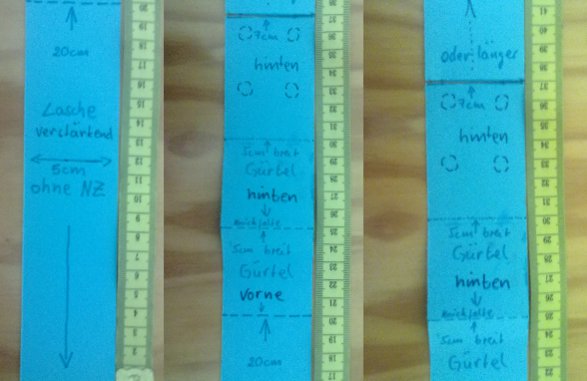 20cm
Lasche
verstärkend
5cm
ohne NZ
7cm
hinten
5cm breit
Gürtel
hinten
Knickfalte
5cm breit
Gürtel
vorne
20cm
oder länger
7cm
hinten
5cm breit
Gürtel
hinten
Knickfalte
5cm breit
Gürtel